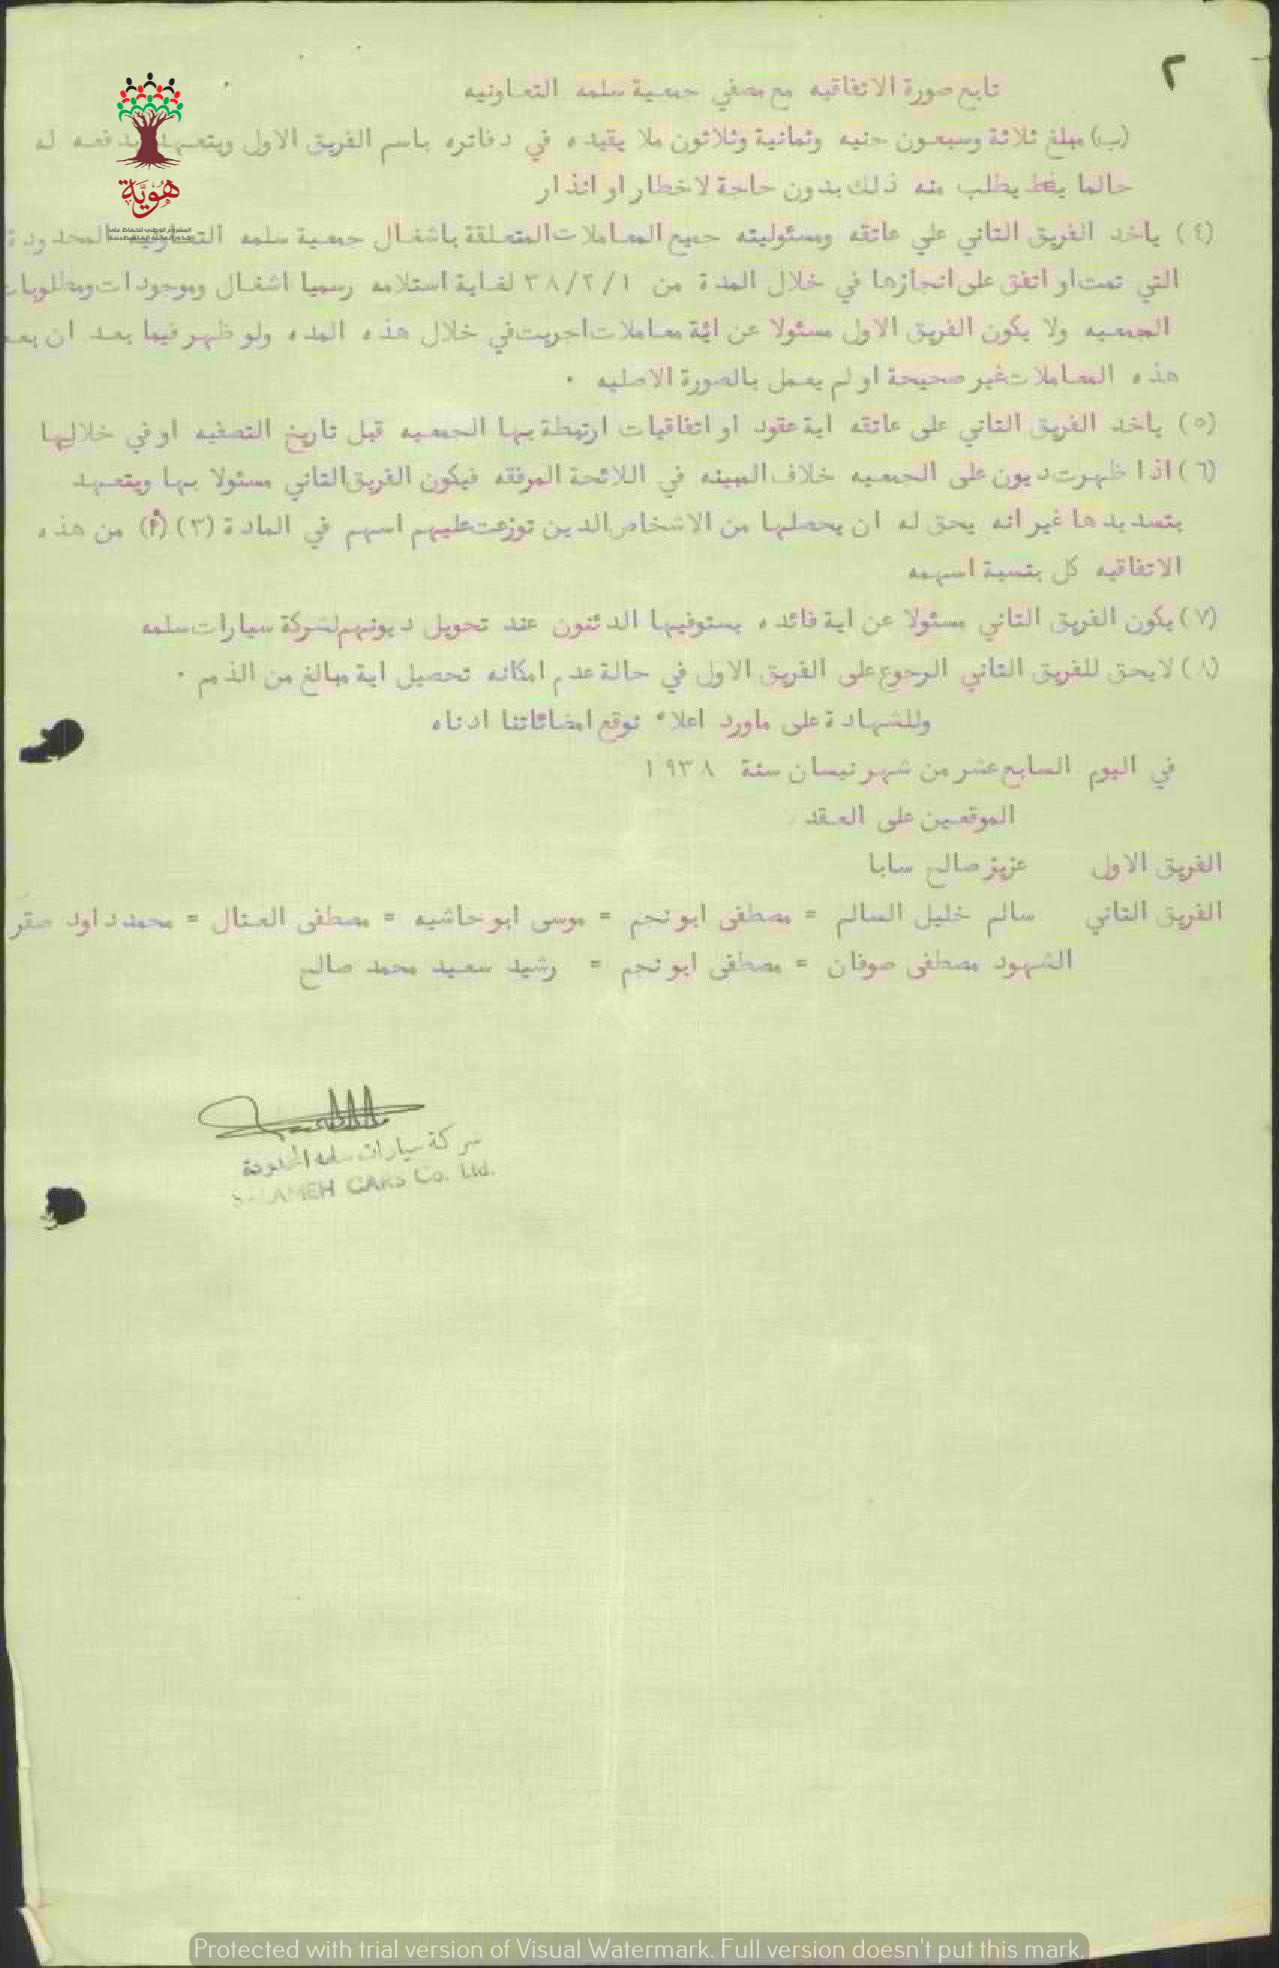 ٢
تابع صورة الاتفاقيه مع مصفي جمعية سلمه التعاونيه
(ب) مبلغ ثلاثة وسبعون جنيه وثمانية وثلاثون ملا يقيده في دفاتره باسم الفريق الاول ويتعهد بدفعه له
حالما يطلب منه ذلك بدون حاجة لاخطار او انذار
(٤) ياخد الفريق الثاني علي عاتقه ومسئوليته جميع المعاملات المتعلقة باشغال جمعية سلمه التعاونيه المحدودة
التي تمت او اتفق على انجازها في خلال المدة من ٣٨/٢/١ لغاية استلامه رسميا اشغال وموجودات ومطلوبات
الجمعيه ولا يكون الفريق الاول مسئولا عن اية معاملات اجريت في خلال هذه المده ولو ظهر فيما بعد ان بعض
هذه المعاملات غير صحيحة او لم يعمل بالصورة الاصليه ٠
(٥) ياخد الفريق الثاني على عاتقه اية عقود او اتفاقيات ارتبطة بها الجمعيه قبل تاريخ التصفيه او في خلالها
(٦) اذا ظهرت ديون على الجمعيه خلاف المبينه في اللائحة المرفقه فيكون الفريق الثاني مسئولا بها ويتعهد
بتسديدها غير انه يحق له ان يحصلها من الاشخاص الدين توزعت عليهم اسهم في المادة (٣) (أ) من هذه
الاتفاقيه كل بنسبة اسهمه
(٧) يكون الفريق الثاني مسئولا عن اية فائده يستوفيها الدئنون عند تحويل ديونهم لشركة سيارات سلمه
(٨) لا يحق للفريق الثاني الرجوع على الفريق الاول في حالة عدم امكانه تحصيل اية مبالغ من الذمم ٠
وللشهادة على ماورد اعلاه نوقع امضائاتنا ادناه
في اليوم السابع عشر من شهر نيسان سنة ١٩٣٨
الموقعين على العقد
الفريق الاول عزيز صالح سابا
الفريق الثاني سالم خليل السالم = مصطفى ابو نجم = موسى ابو حاشيه = مصطفى العتال = محمد داود صقر
الشهود مصطفى صوفان = مصطفى ابو نجم = رشيد سعيد محمد صالح
شركة سيارات سلمه المحدودة
SALAMEH CARS Co. Ltd.
هُوِيَّة
المشروع الوطني للحفاظ على
جذور العائلة الفلسطينية
Protected with trial version of Visual Watermark. Full version doesn't put this mark.